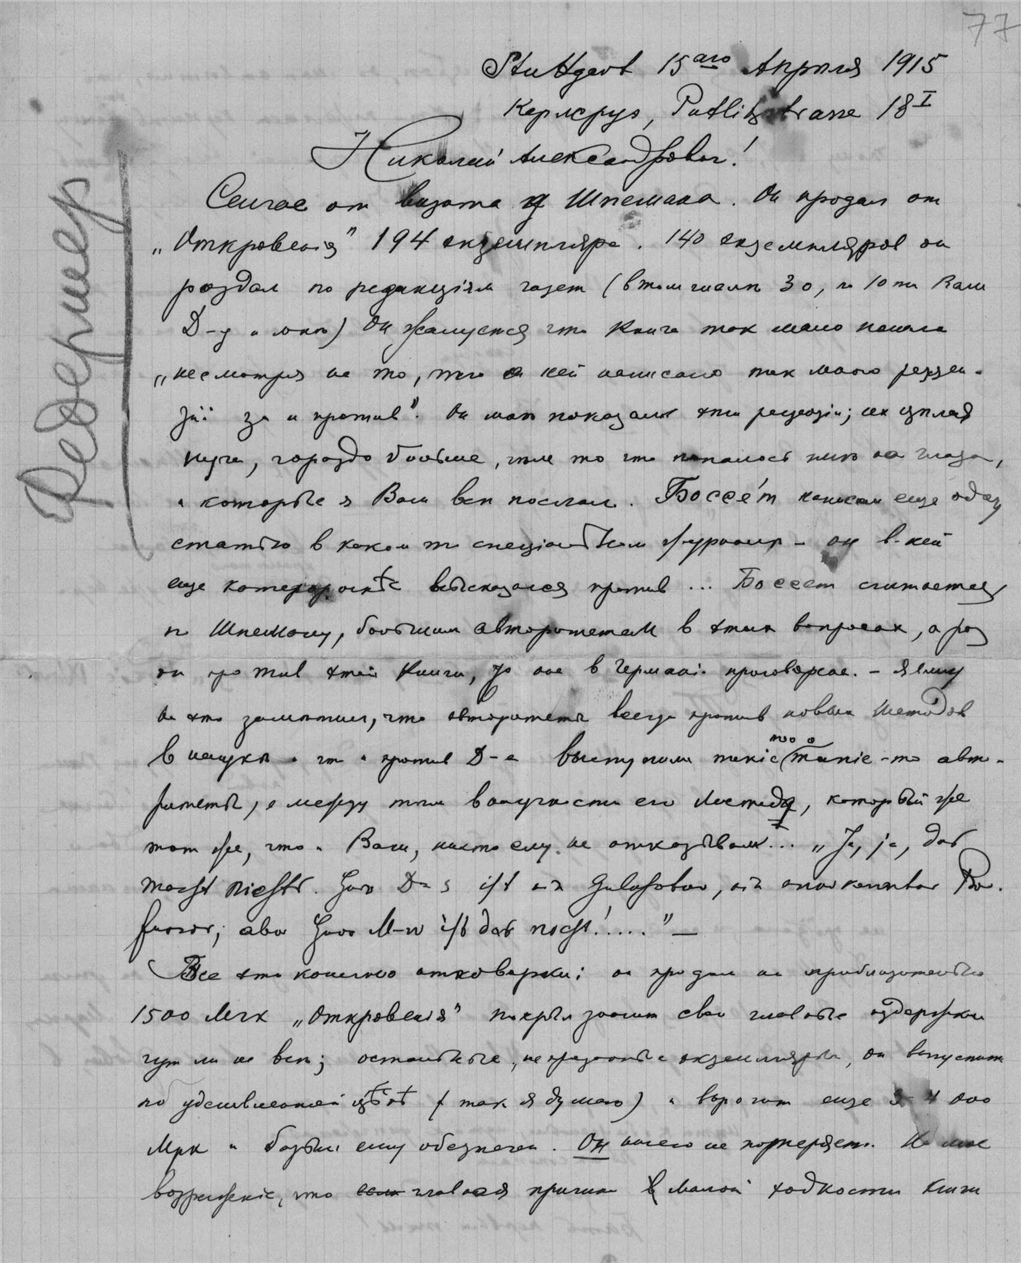 77
Stuttgart 15аго Апрѣля 1915
Putlitzstrasse 18 I
Николай Александровичъ!
Федермеер
Сейчас от визита Шпемана. Он продал от
„Откровенія" 194 экземпляра. 140 экземпляров он
роздал по редакціям газет (в том числѣ 30, по 10 ти Вам
Д-у и мнѣ) Он жалуется что книга так мало пошла
„несмотря на то, что о ней написано так много рецен-
зій за и против". Он мнѣ показал эти рецензіи; их цѣлая
куча, гораздо больше, чѣм то что попалось мнѣ на глаза,
и которые я Вам всѣ послал. Боссе́т написал еще одну
статью в каком то спеціальном журналѣ - он в ней
еще высказался против ... Боссет считается
по Шпеману, большим авторитетом в этих вопросах, а раз
он против этой книги, то она в Германіи проиграна. - Я ему
на это замѣтил, что авторитеты всегда против новых методов
в наукѣ и что и против Д-а выступили такіе то авто-
ритеты, а между тѣм в научности его метода, который же
тот же, что и Ваш, никто ему не отказывал... „Ja, ja, das
macht nichts. Herr D-s ist ein Gelehrter, ein anerkannter Pro-
fessor; aber Herr M-w ist das nicht!....." —
Все это конечно отговорки: он продал на приблизительно
1500 Мрк „Откровенія" покрыл этим свои главные издержки
чуть ли не всѣ; остальные, непроданные экземпляры, он выпустит
по удешевленной цѣнѣ (так я думаю) и выручит еще 3-4000
Мрк и барыш ему обезпечен. Он ничего не потеряет. На мое
возраженіе, что главная причина малой ходкости книги